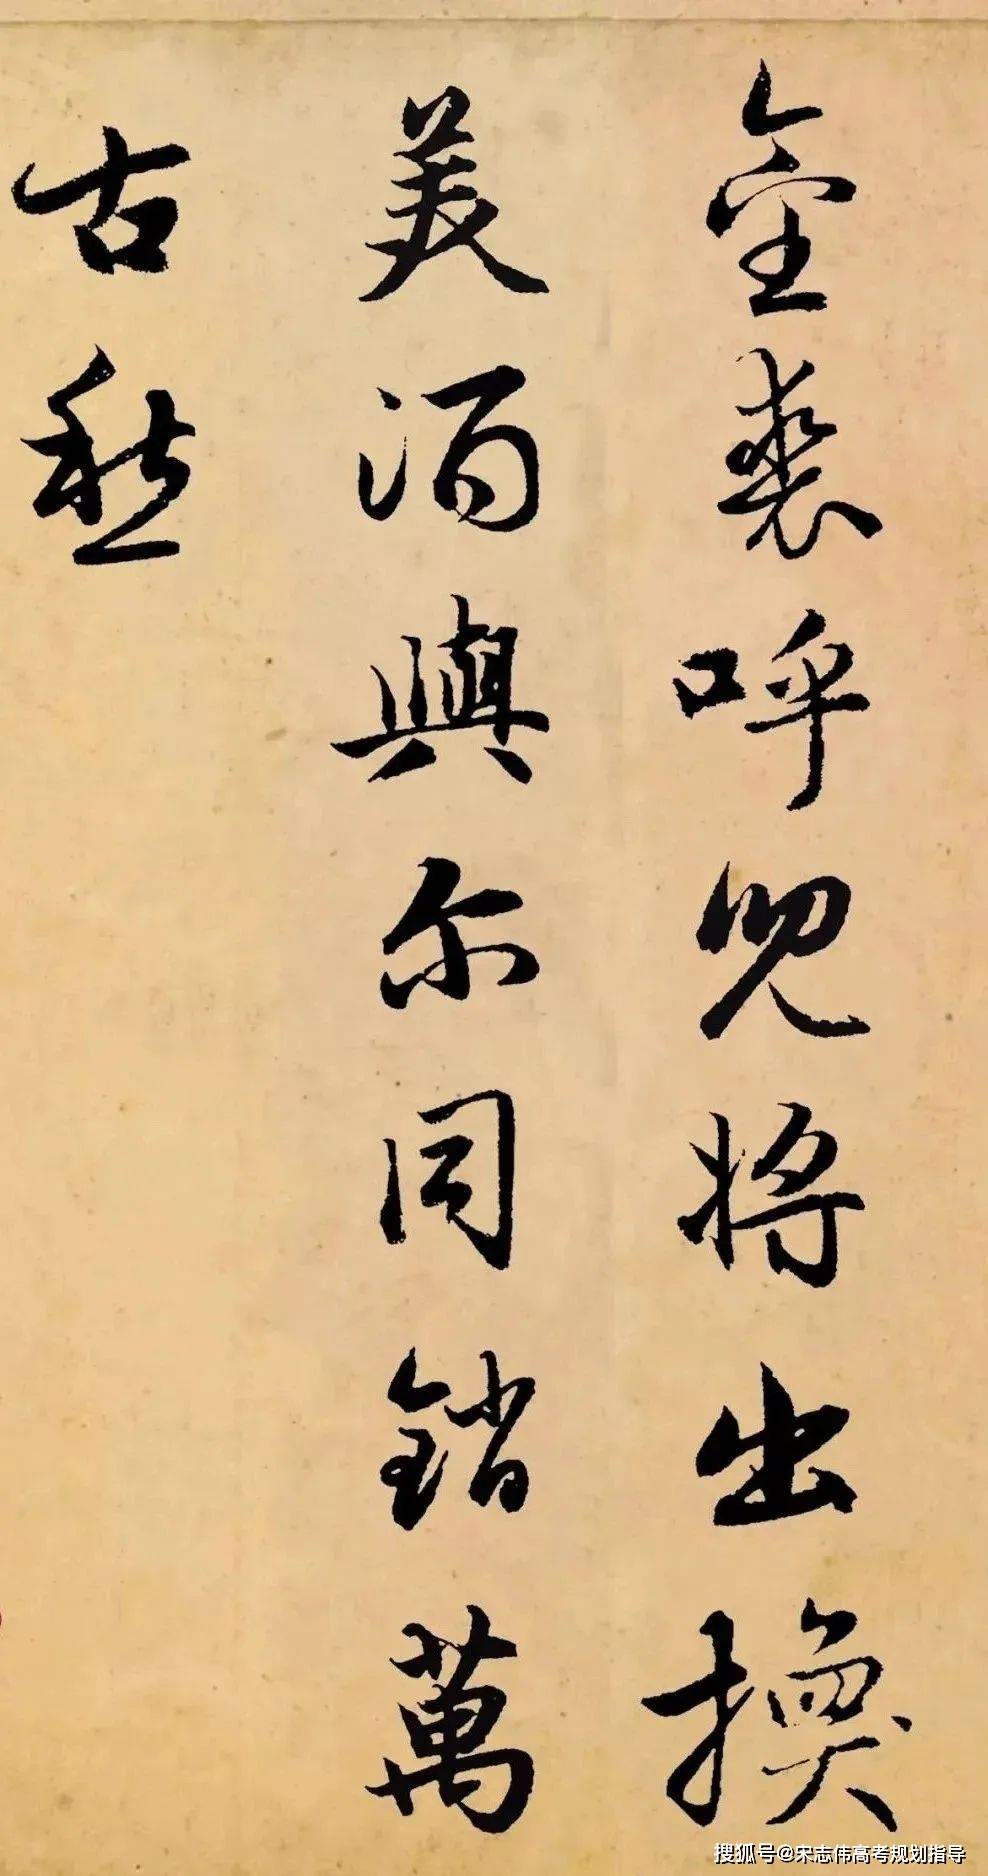 金裘呼兒将出換
美酒與尔同銷萬
古愁
搜狐号@宋志伟高考规划指导